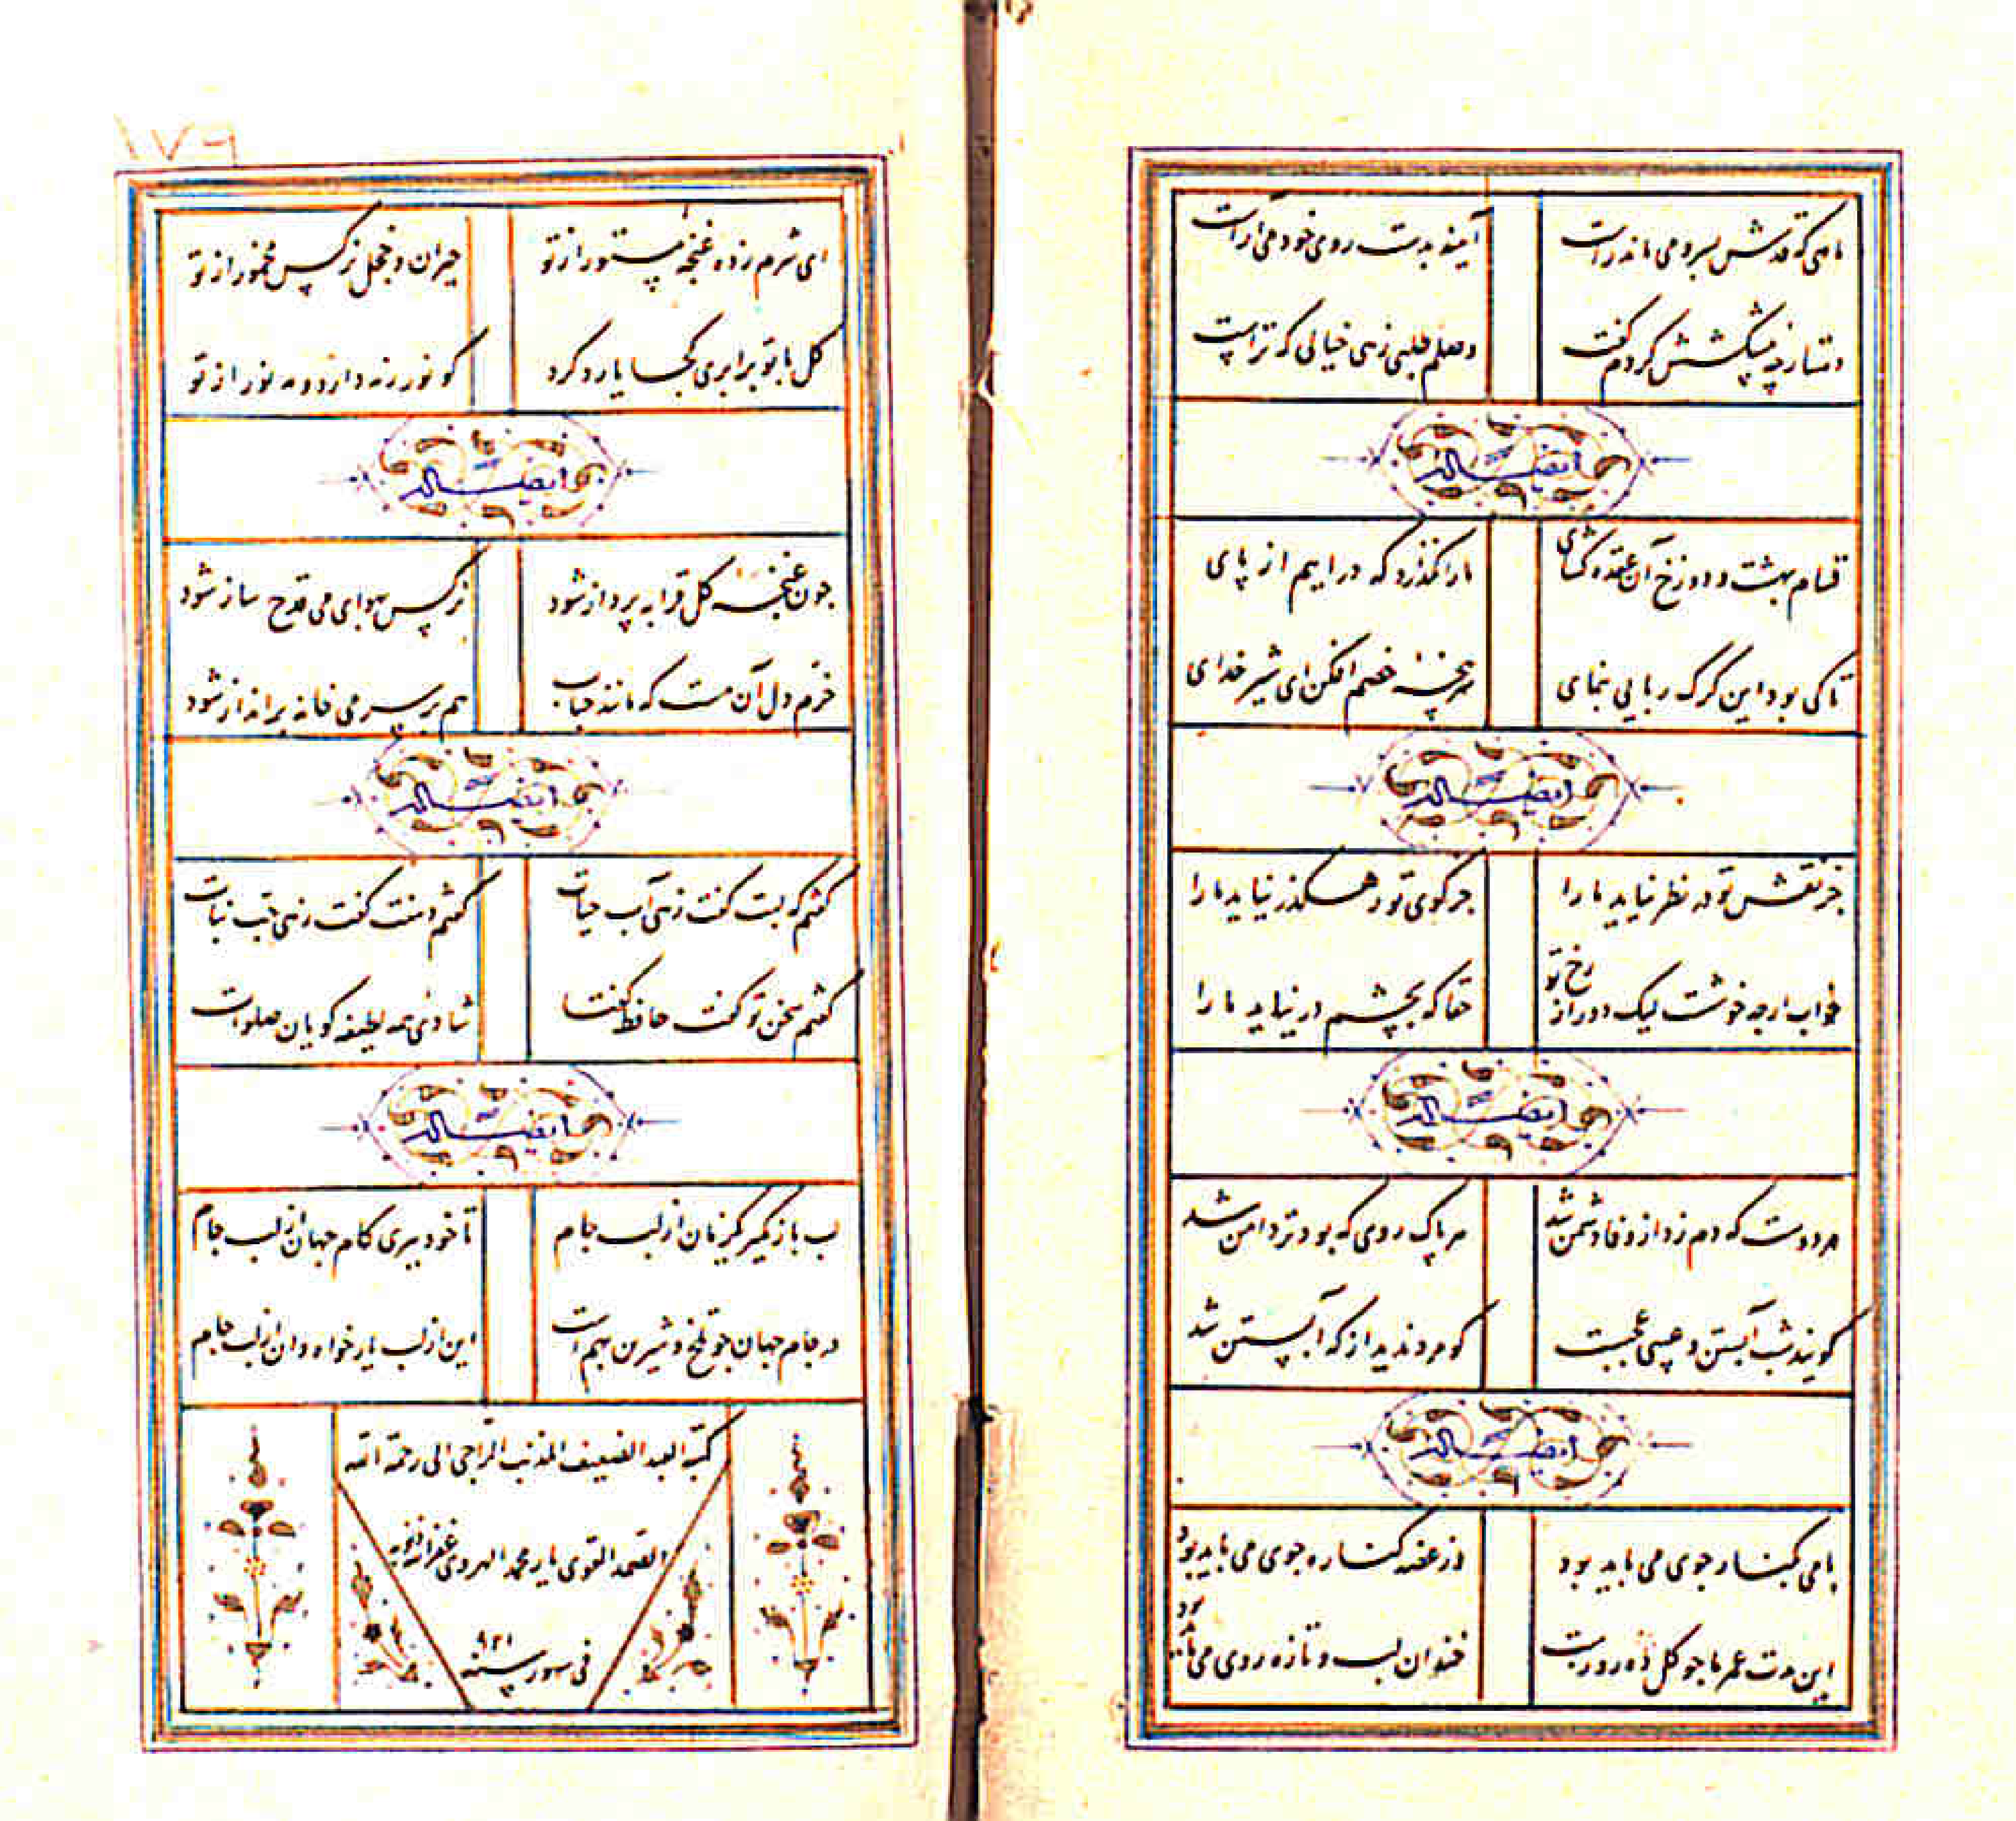 ماهی که قدش بسرو می ماند راست
آیینه بدست روی خود می آراست
دستارچه پیشکشش کردم گفت
وصلم طلبی زهی خیالی که تراست
ایضاً له
قسام بهشت و دوزخ آن عقده کشای
ما را نگذرد که دراییم از پای
تا کی بود این گرگ ربایی بنمای
سرپنجه خصم افکن ای شیر خدای
ایضاً له
جز نقش تو در نظر نیاید ما را
جز کوی تو رهگذر نیاید ما را
خواب ارچه خوشست لیک دور از رخ تو
حقا که بچشم در نیاید ما را
ایضاً له
هر دوست که دم زد از وفا دشمن شد
هر پاک روی که بود تردامن شد
کویند شب آبستن و عجبست
کو مرد ندید از که آبستن شد
ایضاً له
با می بکنار جوی می باید بود
وز غصه کناره جوی می باید بود
این مدت عمر ما جو کل ده روزست
خندان لب و تازه روی می باید بود
۱۷۹
ای شرم زده غنچه مستور از تو
حیران و خجل نرکس مخمور از تو
کل با تو برابری کجا یارد کرد
کو نور ز مه دارد و مه نور از تو
ایضاً له
جون غنچه کل قرابه پرداز شود
نرکس بهوای می قدح ساز شود
خرم دل آن مست که مانند حباب
هم بر سر می خانه برانداز شود
ایضاً له
کفتم که لبت کفت زهی آب حیات
کفتم دهنت کفت زهی حب نبات
کفتم سخن تو کفت حافظ کفتا
شادی همه لطیفه کویان صلوات
ایضاً له
لب باز مکیر یکزمان از لب جام
تا خود ببری کام جهان از لب جام
در جام جهان جو تلخ و شیرین بهم است
این از لب یار خواه و آن از لب جام
کتبه العبد الضعیف المذنب الراجی الی رحمة الله
الصمد القوی یار محمد الهروی غفر الله ذنوبه
فی شهور سنه